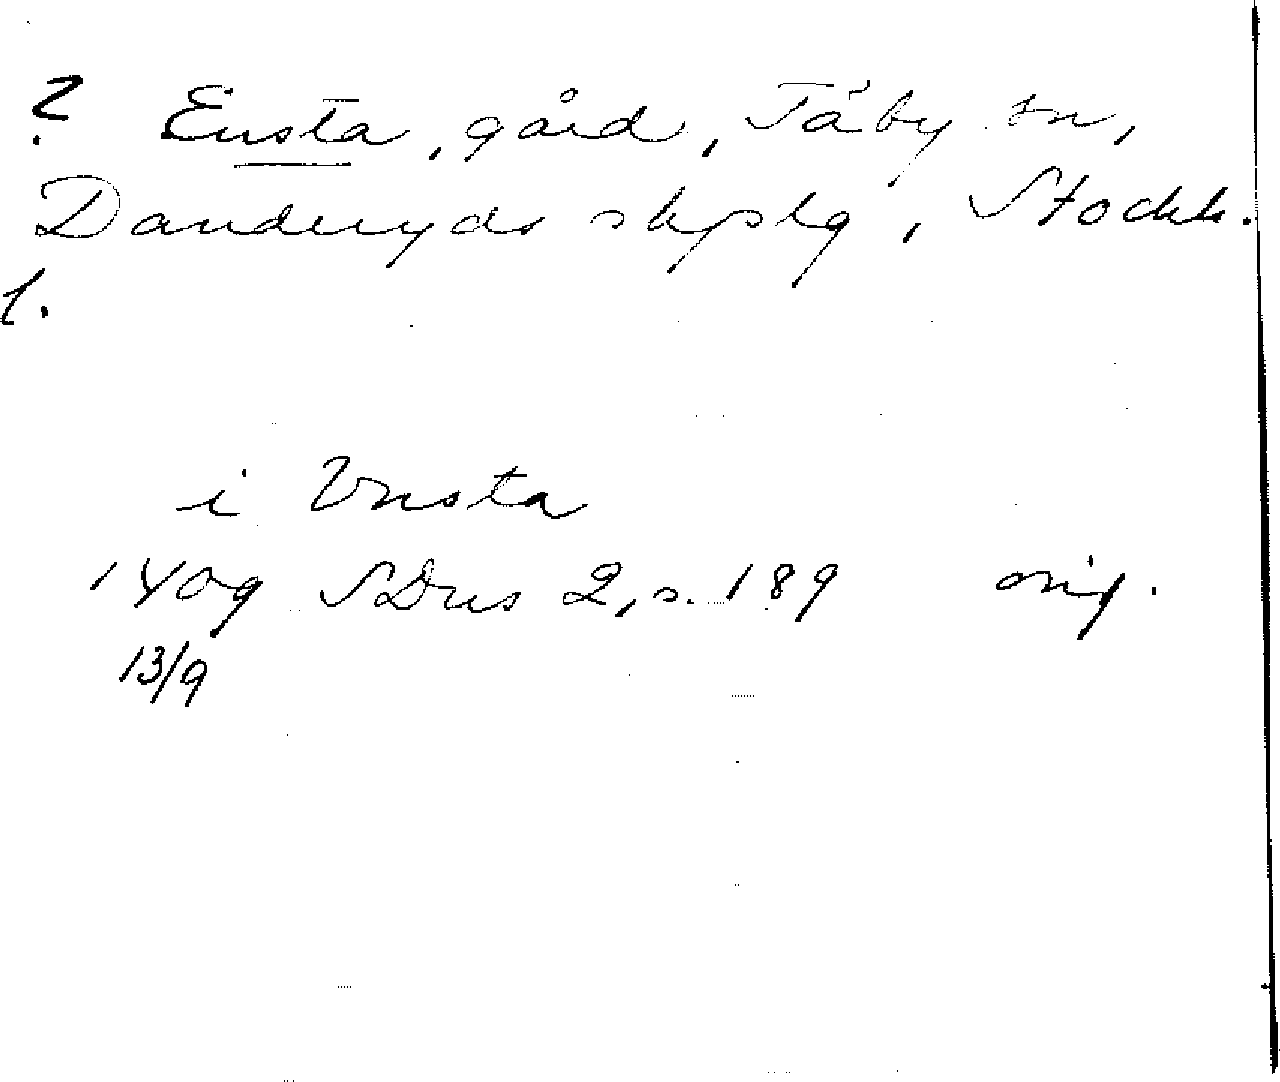 ? Ensta, gård, Täby sn,
Danderyds skpslg, Stockh.
l.
i Vnsta
1409 SDns 2, s. 189 orig.
13/9